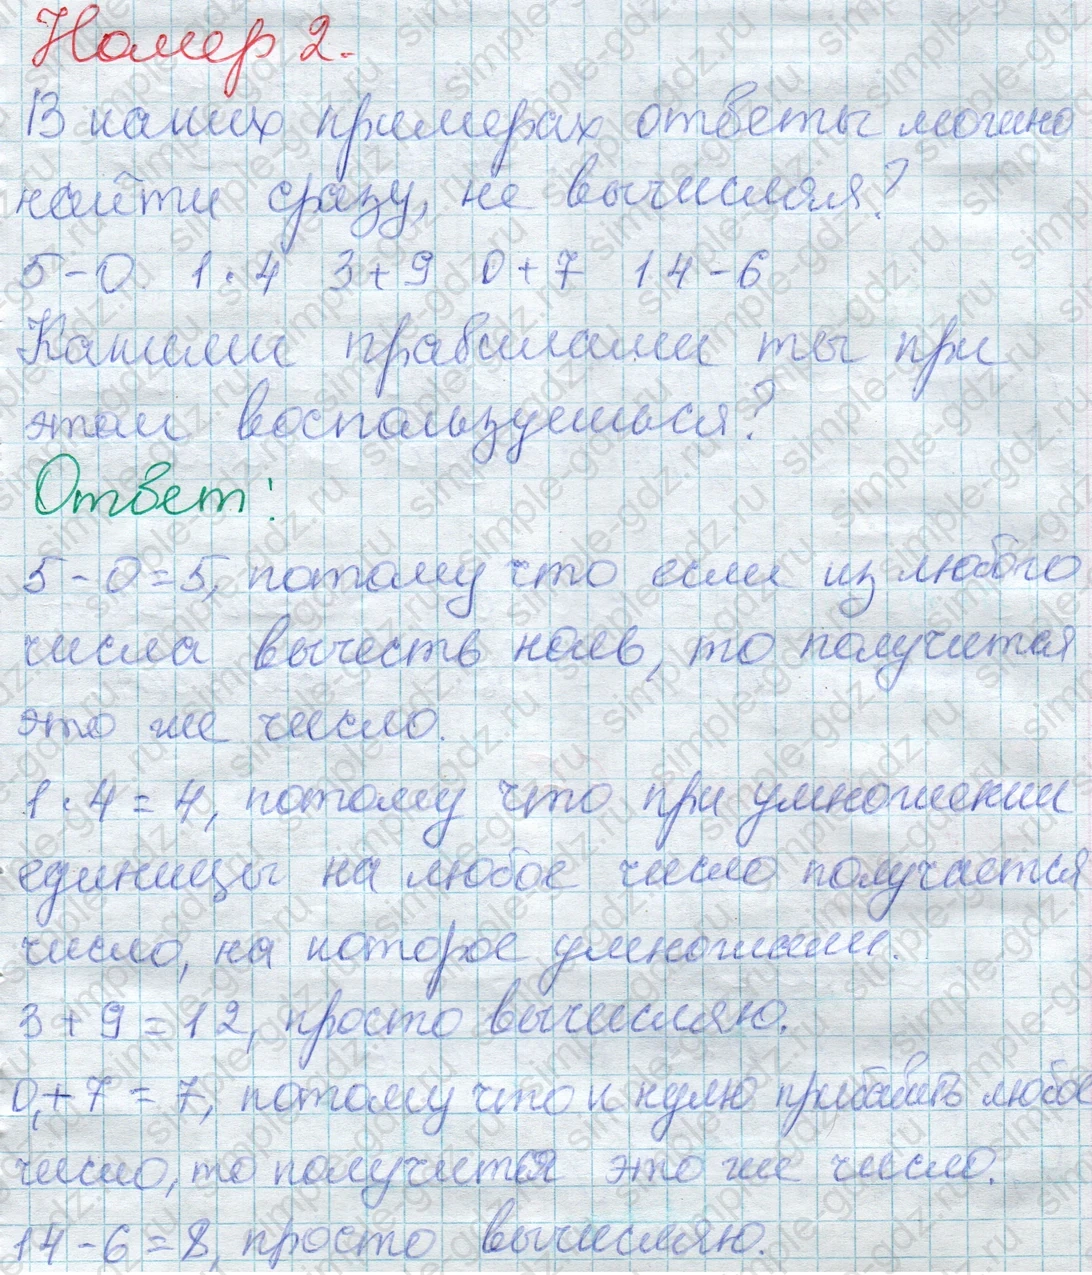 Номер 2.
В каких примерах ответы можно
найти сразу, не вычисляя?
5-0 1·4 3+9 0+7 14-6
Какими правилами ты при
этом воспользуешься?
Ответ:
5-0=5, потому что если из любого
числа вычесть ноль, то получится
это же число.
1·4=4, потому что при умножении
единицы на любое число получается
число, на которое умножали.
3+9=12, просто вычисляю.
0+7=7, потому что к нулю прибавить любое
число, то получится это же число.
14-6=8, просто вычисляю.
simple-gdz.ru